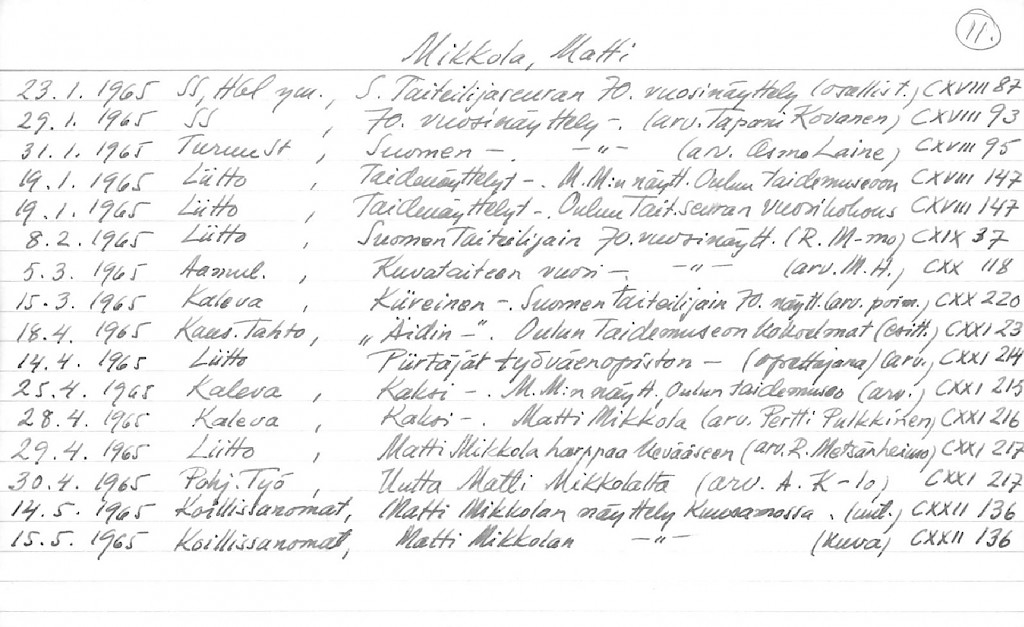 11.
Mikkola, Matti
23.1. 1965 SS, Hbl ym., S. Taiteilijaseuran 70. vuosinäyttely (osallist.) CXVIII 87
29.1. 1965 SS , 70. vuosinäyttely -. (arv. Tapani Kovanen) CXVIII 93
31.1. 1965 Turunst , Suomen -. -"- (arv. Osmo Laine) CXVIII 95
19.1. 1965 Liitto , Taidenäyttelyt -. M.M:n näytt. Oulun taidemuseoon CXVIII 147
19.1. 1965 Liitto , Taidenäyttelyt -. Oulun Tait.seuran vuosikokous CXVIII 147
8.2. 1965 Liitto , Suomen Taiteilijain 70. vuosinäytt. (R. M-mo) CXIX 37
5.3. 1965 Aamul. , Kuvataiteen vuosi -. -"- (arv. M.H.) CXX 118
15.3. 1965 Kaleva , Kiireinen -. Suomen Taiteilijain 70. näytt. (arv. poim.) CXX 220
18.4. 1965 Kans. Tahto, "Äidin -". Oulun Taidemuseon kokoelmat (esitt.) CXXI 23
14.4. 1965 Liitto Piirtäjät työväenopiston - (opettajana) (arv.) CXXI 214
25.4. 1965 Kaleva , Kaksi -. M.M:n näytt. Oulun taidemuseo (arv.) CXXI 215
28.4. 1965 Kaleva , Kaksi -. Matti Mikkola (arv. Pertti Pulkkinen) CXXI 216
29.4. 1965 Liitto , Matti Mikkola harppaa kevääseen (arv. R. Metsänheimo) CXXI 217
30.4. 1965 Pohj. Työ , Uutta Matti Mikkolalta (arv. A. K-lo) CXXI 217
14.5. 1965 Koillissanomat, Matti Mikkolan näyttely Kuusamossa. (uut.) CXXII 136
15.5. 1965 Koillissanomat, Matti Mikkolan -"- (kuva) CXXII 136